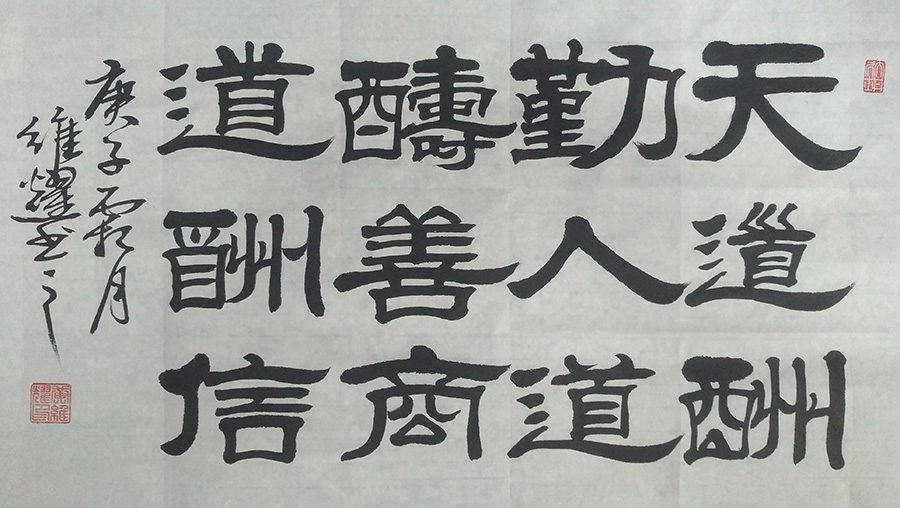 天道酬
勤人道
醻善商
道酬信
庚子霜月
維耀书之